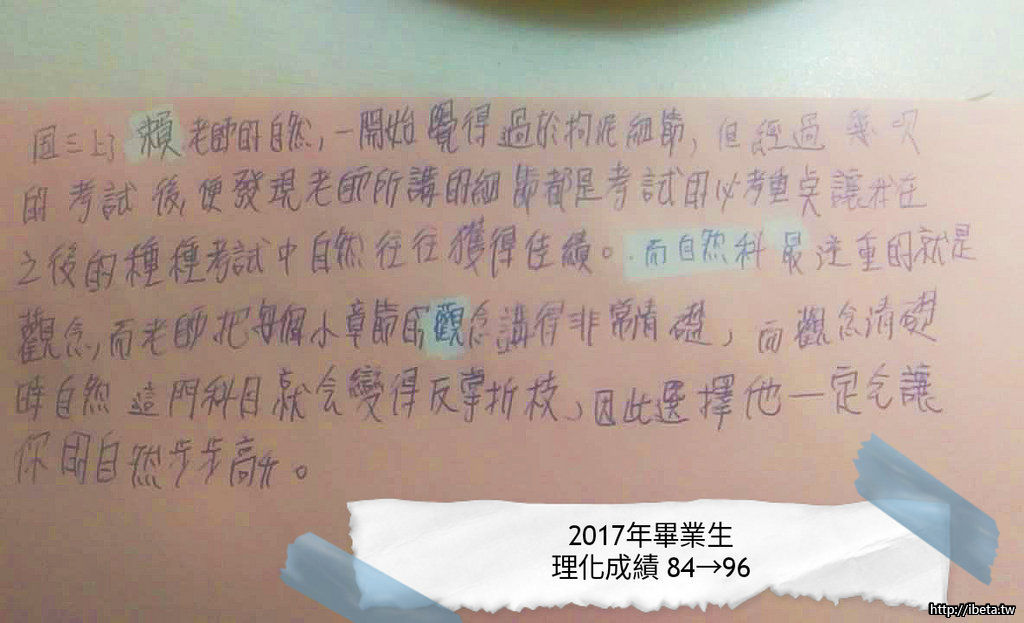 國三上了賴老師的自然,一開始覺得過於拘泥細節,但經過幾次
的考試後,便發現老師所講的細節都是考試的必考重點讓我在
之後的種種考試中自然往往獲得佳績。而自然科最注重的就是
觀念,而老師把每個小章節的觀念講得非常清礎,而觀念清礎
時自然這門科目就会變得反掌折枝,因此選擇他一定会讓
你的自然步步高升。
2017年畢業生
理化成績 84→96
http://ibeta.tw